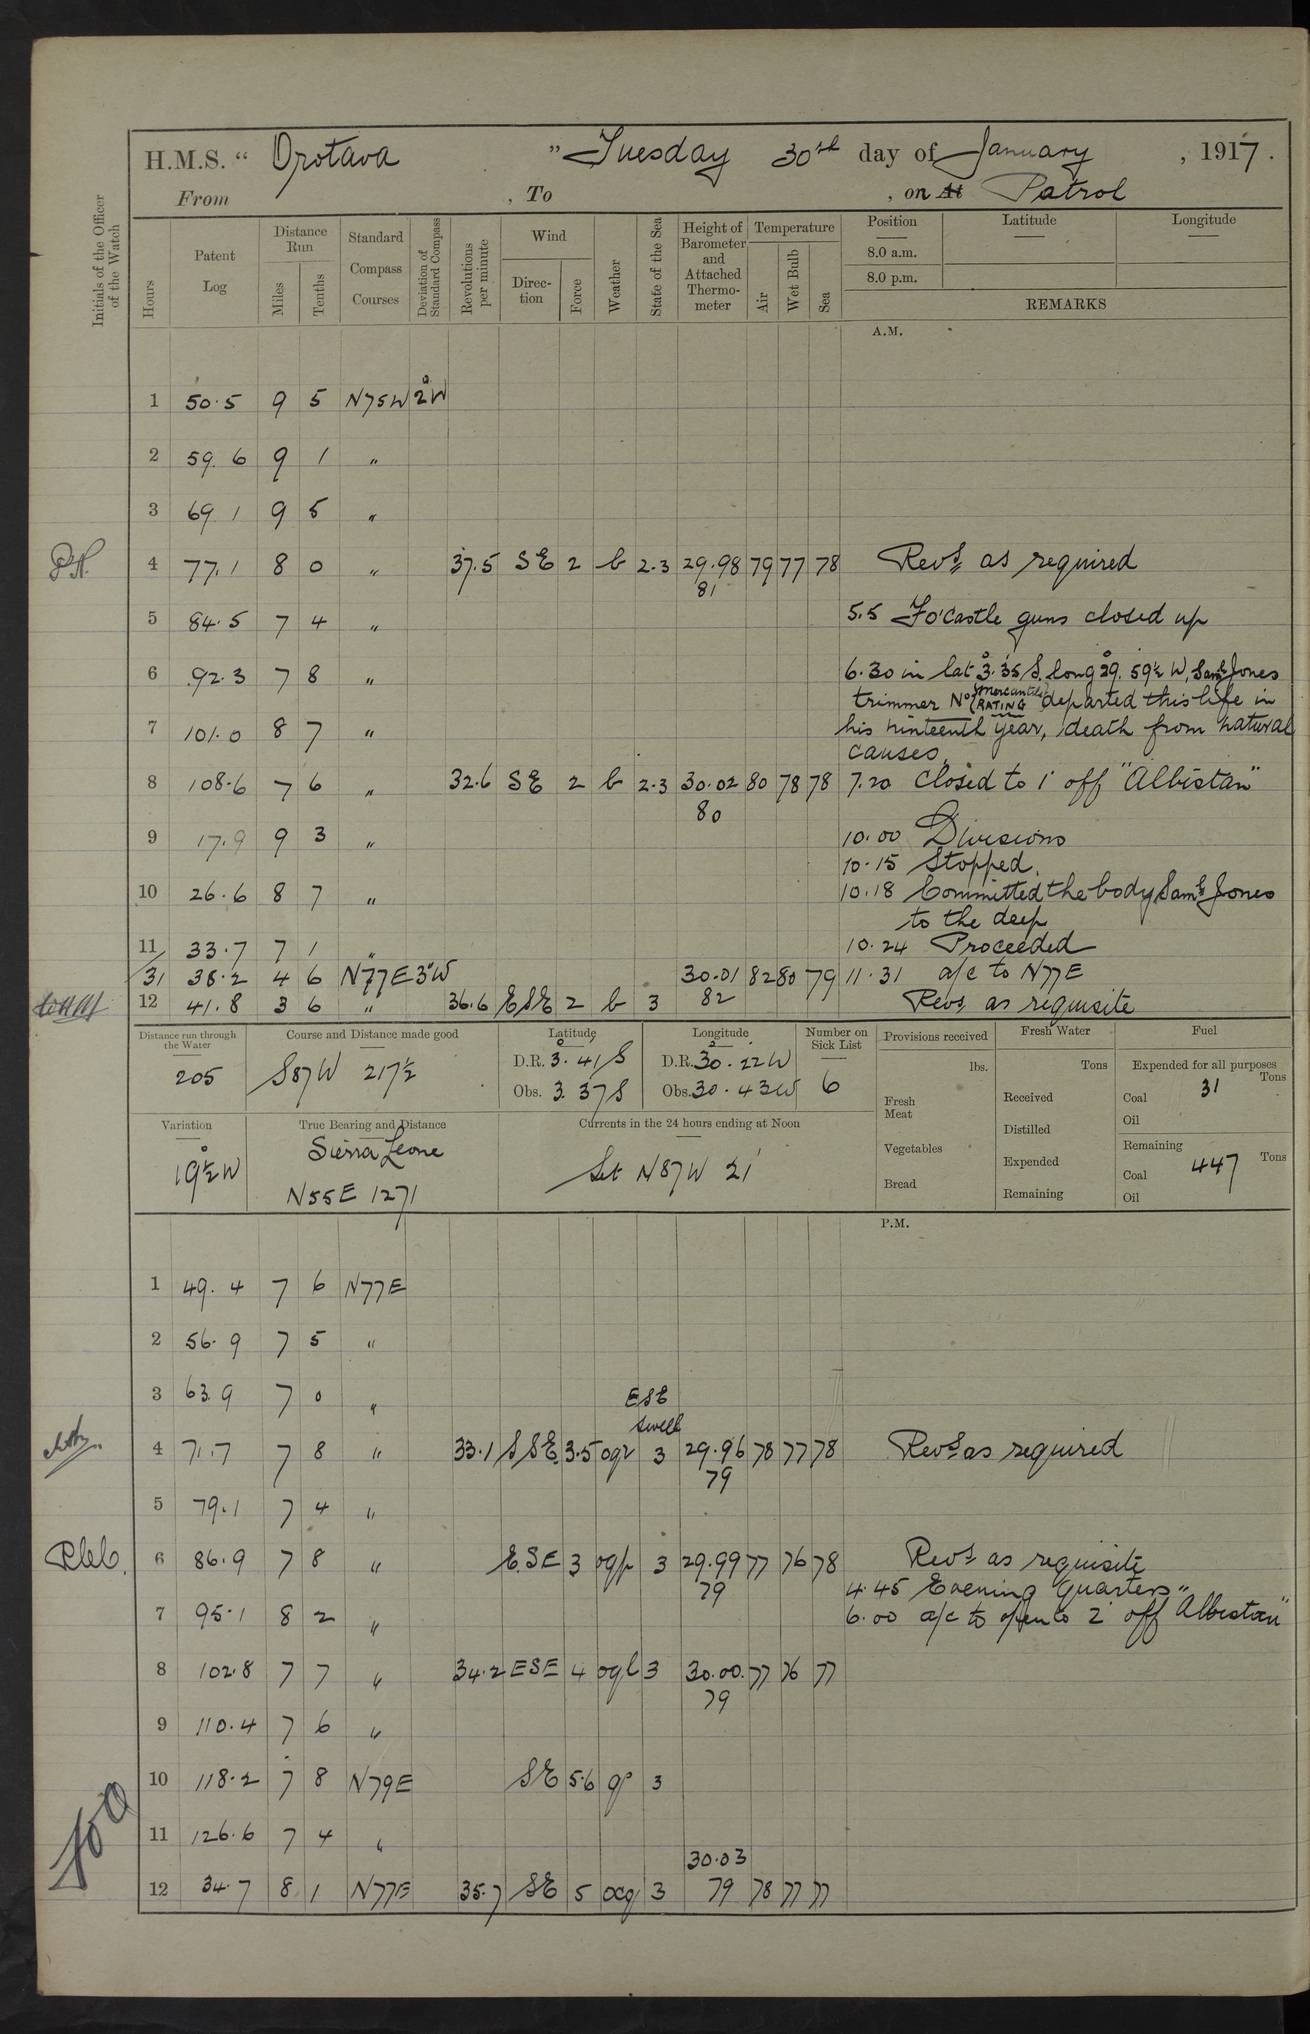 H.M.S. " Orotava " Tuesday 30th day of January , 1917.
From , To , on At Patrol
Initials of the Officer of the Watch
Hours
Patent Log
Distance Run
Miles
Tenths
Standard Compass Courses
Deviation of Standard Compass
Revolutions per minute
Wind
Direction
Force
Weather
State of the Sea
Height of Barometer and Attached Thermometer
Temperature
Air
Wet Bulb
Sea
Position
Latitude
Longitude
8.0 a.m.
8.0 p.m.
REMARKS
A.M.
1 50.5 9 5 N75W 2°W
2 59.6 9 1 "
3 69.1 9 5 "
4 77.1 8 0 " 37.5 SE 2 b 2.3 29.98 79 77 78 Revs as required
81
5 84.5 7 4 " 5.5 Fo'castle guns closed up
6 92.3 7 8 " 6.30 in lat 3°.35 S. long 29°.59½ W, Saml Jones
trimmer No (Mercantile RATING) departed this life in
7 101.0 8 7 " his ninteenth year, death from natural
causes.
8 108.6 7 6 " 32.6 SE 2 b 2.3 30.02 80 78 78 7.20 Closed to 1' off "Albistan"
80
9 17.9 9 3 " 10.00 Divisions
10.15 Stopped.
10 26.6 8 7 " 10.18 Committed the body Saml Jones
to the deep
11 33.7 7 1 " 10.24 Proceeded
/31 38.2 4 6 N77E 3°W 30.01 82 80 79 11.31 a/c to N77E
12 41.8 3 6 " 36.6 ESE 2 b 3 82 Revs as requisite
Distance run through the Water
205
Course and Distance made good
S87W 217½
Latitude
D.R. 3°.41 S
Obs. 3 37 S
Longitude
D.R. 30°.22 W
Obs. 30.43W
Number on Sick List
6
Provisions received
lbs.
Fresh Meat
Vegetables
Bread
Fresh Water
Tons
Received
Distilled
Expended
Remaining
Fuel
Expended for all purposes
Tons
Coal 31
Oil
Remaining
Tons
Coal 447
Oil
Variation
19½°W
True Bearing and Distance
Sierra Leone
N55E 1271
Currents in the 24 hours ending at Noon
Set N87W 21'
P.M.
1 49.4 7 6 N77E
2 56.9 7 5 "
3 63.9 7 0 " ESE
swell
4 71.7 7 8 " 33.1 SSE 3.5 oqr 3 29.96 78 77 78 Revs as required
79
5 79.1 7 4 "
6 86.9 7 8 " ESE 3 ogp 3 29.99 77 76 78 Revs as requisite
79 4.45 Evening Quarters
7 95.1 8 2 " 6.00 a/c to open to 2' off "Albistan"
8 102.8 7 7 " 34.2 ESE 4 ogl 3 30.00 77 76 77
79
9 110.4 7 6 "
10 118.2 7 8 N79E SE 5.6 qp 3
11 126.6 7 4 "
30.03
12 34.7 8 1 N77E 35.7 SE 5 ocq 3 79 78 77 77